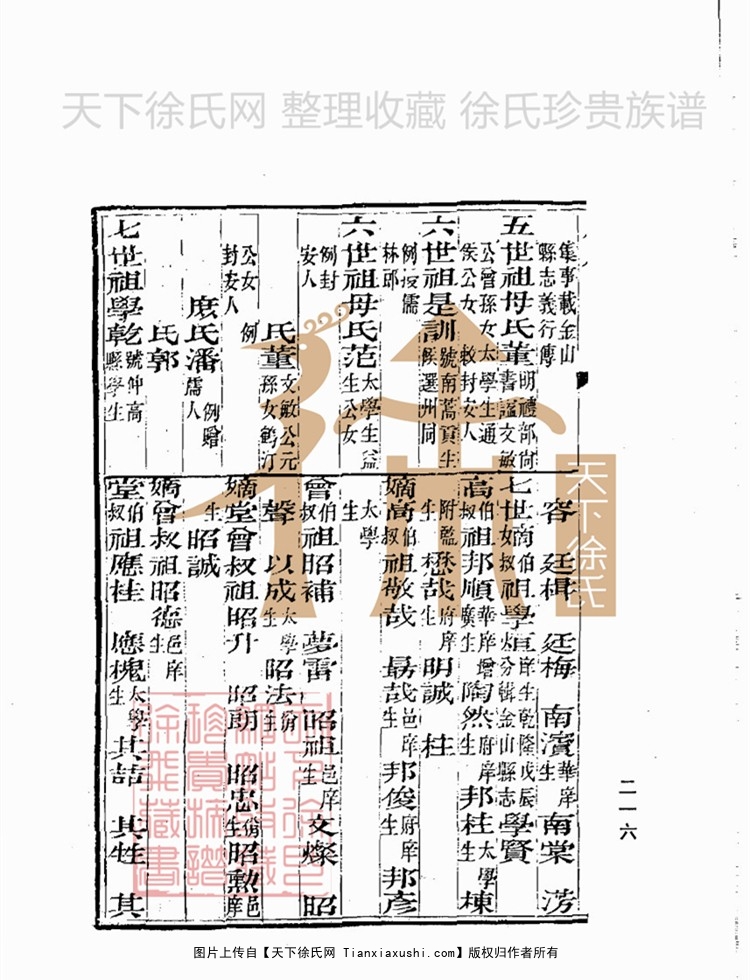 天下徐氏网 整理收藏 徐氏珍贵族谱
集事載金山
縣志義行傳
五世祖母氏董
明禮部尚
書謚文敏
公曾孫女太學生通
侯公女 敕封安人
六世祖是訓
號南蒿貢生
候選州同
例授儒
林郎
六世祖母氏范
太學生益
生公女
例封
安人
氏董
文敏公元
孫女鶴汀
公女 例
封安人
庶氏潘
例贈
孺人
氏郭
七世祖學乾
號仲高
縣學生
容 廷楫 廷梅 南濱
華庠
生
南棠 涝
七世
伯
叔
祖學
庠生乾隆戊辰
分輯金山縣志
學賢
高
伯
叔
祖邦順
華庠增
廣生
陶然
府庠
生
邦桂
太學
生
棟
附監
生
懋哉
府庠
生
明誠 桂
嫡高
伯
叔
祖敬哉 勗哉
邑庠
生
邦俊
府庠
生
邦彥
太學
生
曾
伯
叔
祖昭補 夢雷 昭祖
邑庠
生
文燦 昭
聲 以成
太學
生
昭法
佾
生
嫡堂曾叔祖昭升 昭朗 昭忠
佾
生
昭勲
邑
庠
生
昭誠
嫡曾叔祖昭德
邑庠
生
堂
伯
叔
祖應桂 應槐
太學
生
其喆 其甡 其
二一六
天下徐氏
图片上传自【天下徐氏网 Tianxiaxushi.com】版权归作者所有